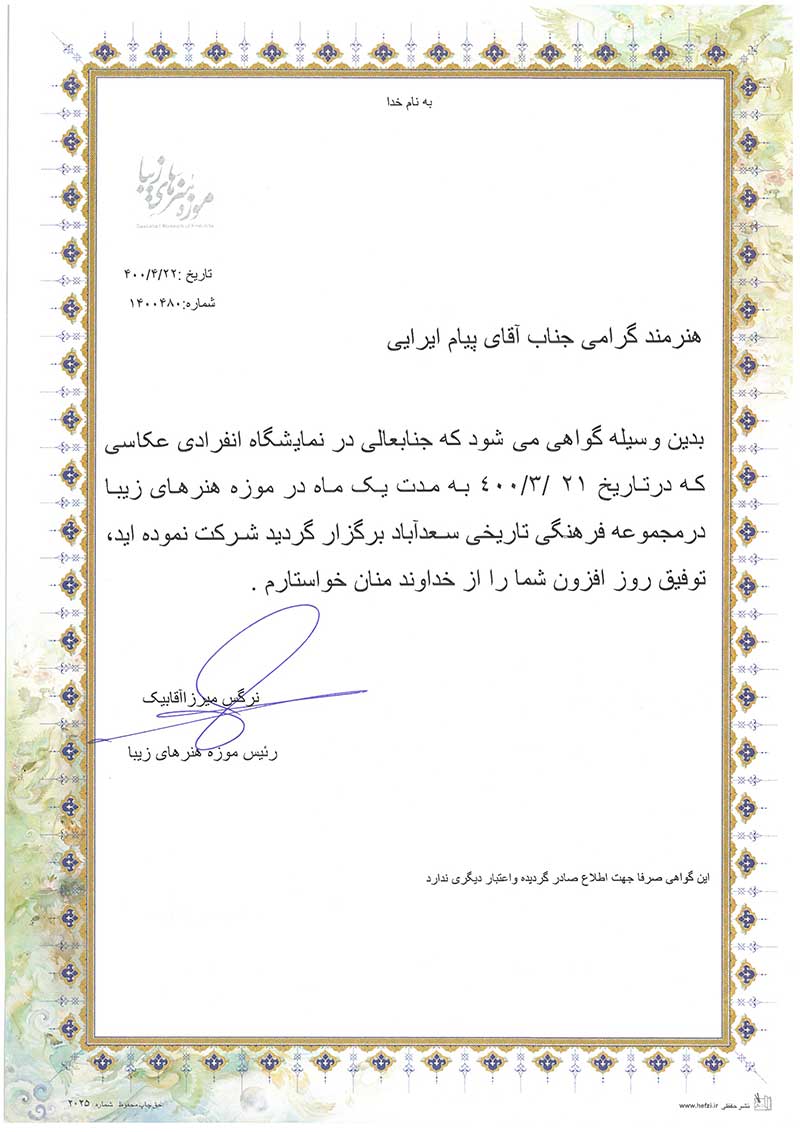 به نام خدا
موزه هنرهای زیبا
تاریخ :۴۰۰/۴/۲۲
شماره:۱۴۰۰۴۸۰
هنرمند گرامی جناب آقای پیام ایرایی
بدین وسیله گواهی می شود که جنابعالی در نمایشگاه انفرادی عکاسی
که درتاریخ ۲۱ /۴۰۰/۳ به مدت یک ماه در موزه هنرهای زیبا
درمجموعه فرهنگی تاریخی سعدآباد برگزار گردید شرکت نموده اید،
توفیق روز افزون شما را از خداوند منان خواستارم .
نرگس میرزاآقابیک
رئیس موزه هنرهای زیبا
این گواهی صرفا جهت اطلاع صادر گردیده واعتبار دیگری ندارد
نشر حفظی www.hefzi.ir
حق چاپ محفوظ شماره ۲۰۲۵